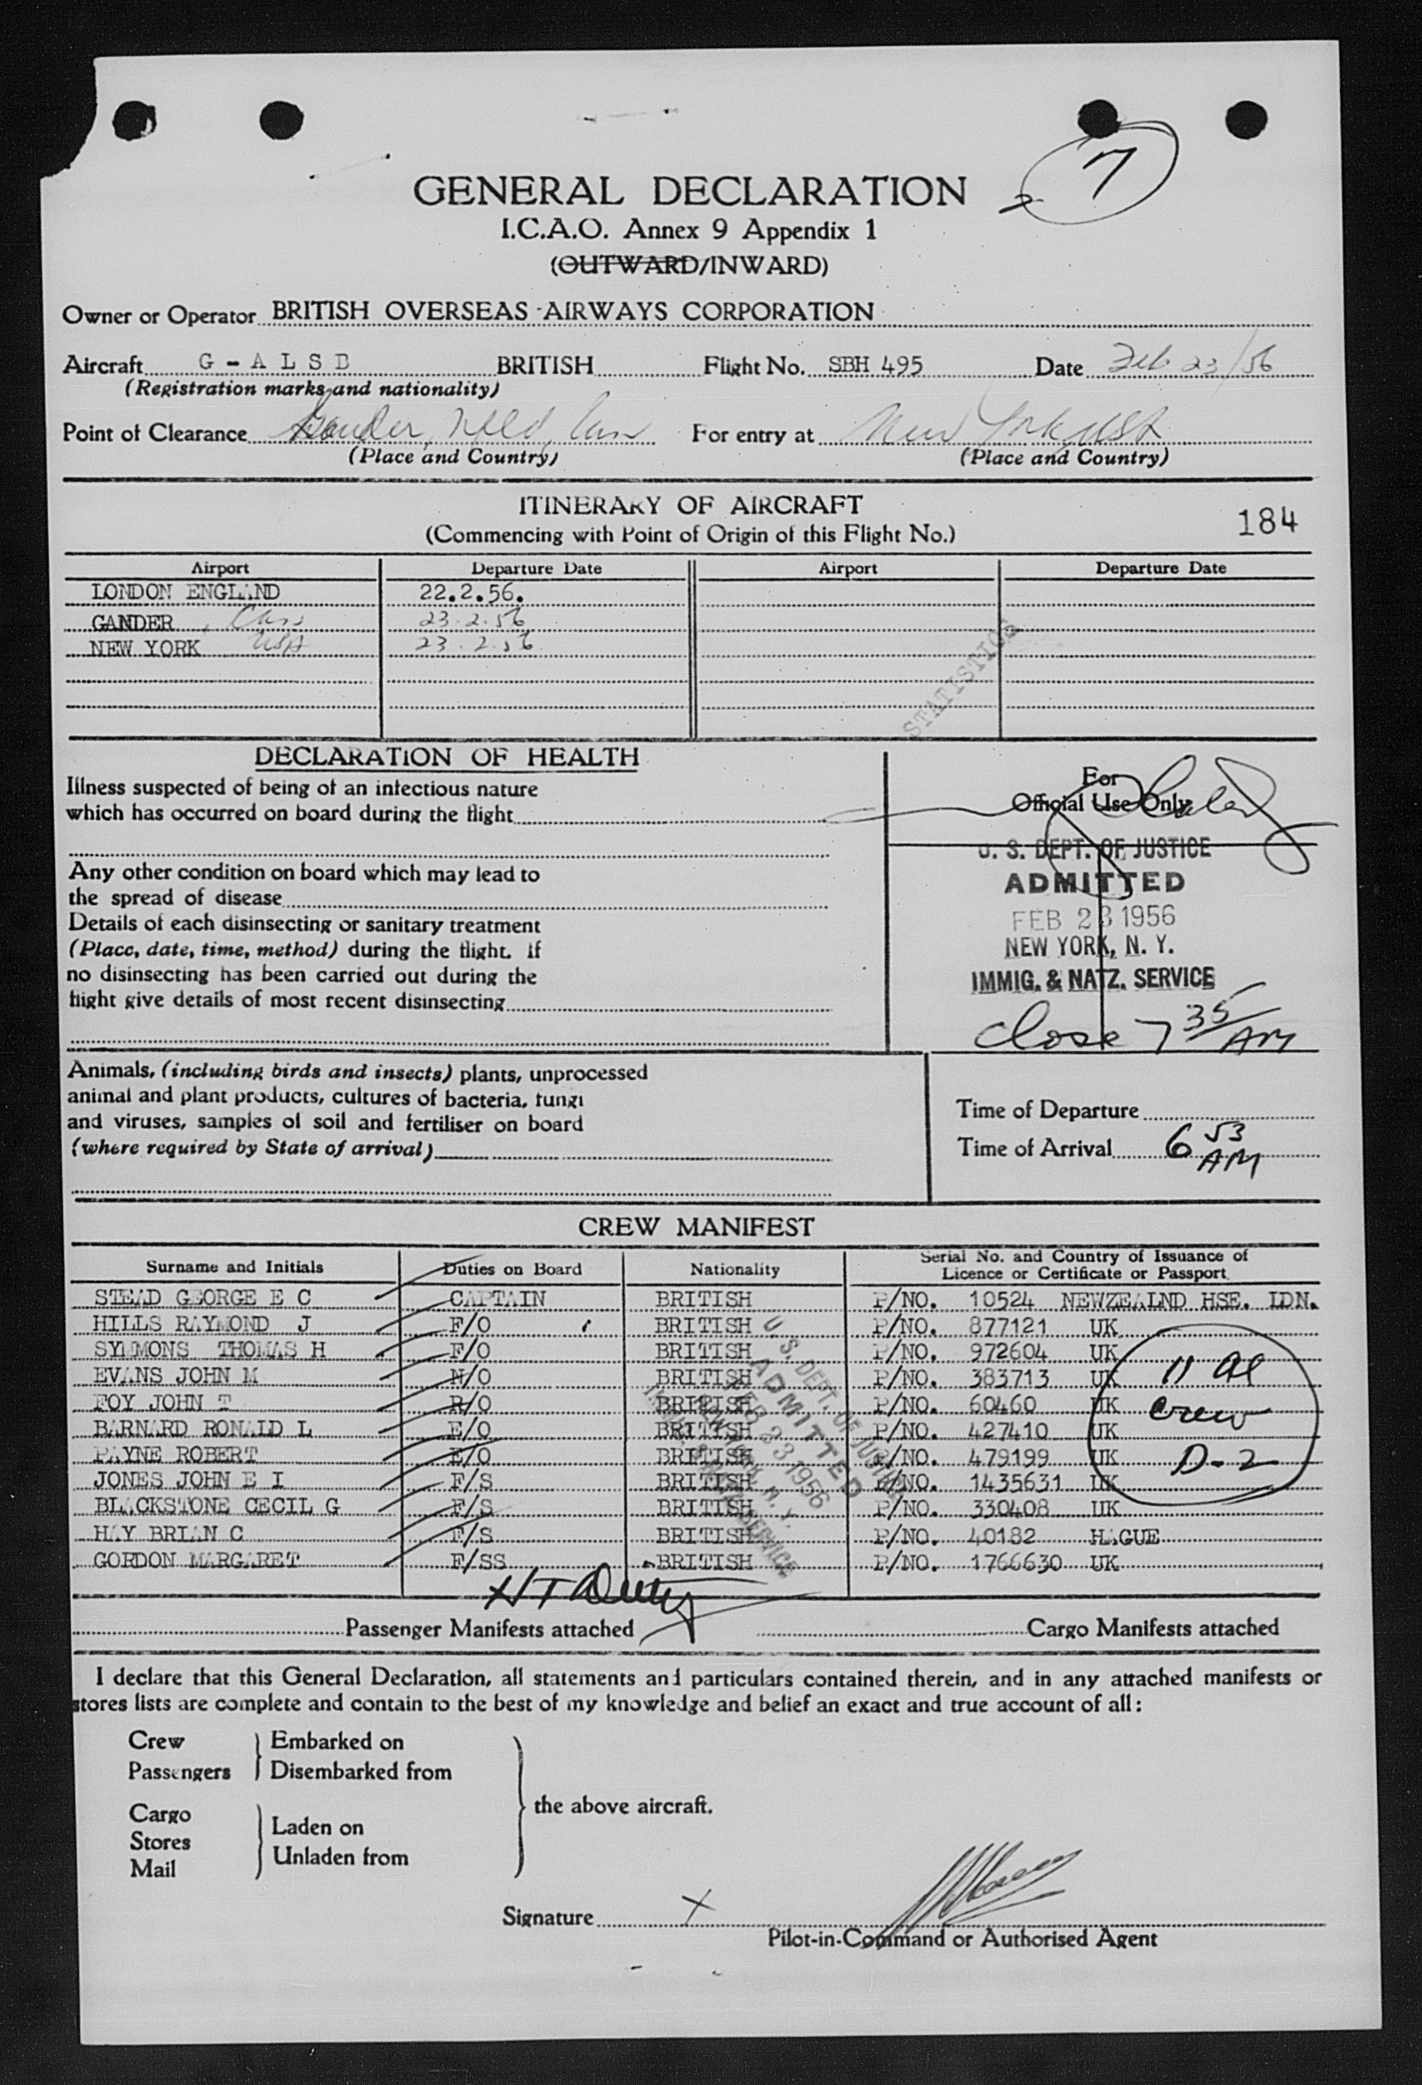 7
GENERAL DECLARATION
I.C.A.O. Annex 9 Appendix 1
(OUTWARD/INWARD)
Owner or Operator BRITISH OVERSEAS AIRWAYS CORPORATION
Aircraft G - A L S D BRITISH Flight No. SBH 495 Date Feb 23/56
(Registration marks and nationality)
Point of Clearance Gander, Nfld, Can For entry at New York, USA
(Place and Country) (Place and Country)
ITINERARY OF AIRCRAFT
(Commencing with Point of Origin of this Flight No.) 184
Airport Departure Date Airport Departure Date
LONDON ENGLAND 22.2.56.
GANDER, Can 23.2.56
NEW YORK USA 23.2.56
STATISTICS
DECLARATION OF HEALTH
Illness suspected of being of an infectious nature
which has occurred on board during the flight
Any other condition on board which may lead to
the spread of disease
Details of each disinsecting or sanitary treatment
(Place, date, time, method) during the flight. If
no disinsecting has been carried out during the
flight give details of most recent disinsecting
For
Official Use Only
U. S. DEPT. OF JUSTICE
ADMITTED
FEB 23 1956
NEW YORK, N. Y.
IMMIG. & NATZ. SERVICE
Close 7 35 AM
Animals, (including birds and insects) plants, unprocessed
animal and plant products, cultures of bacteria, fungi
and viruses, samples of soil and fertiliser on board
(where required by State of arrival)
Time of Departure
Time of Arrival 6 53 AM
CREW MANIFEST
Surname and Initials Duties on Board Nationality Serial No. and Country of Issuance of
Licence or Certificate or Passport
STEAD GEORGE E C CAPTAIN BRITISH P/NO. 10524 NEWZEALND HSE. LDN.
HILLS RAYMOND J F/O BRITISH P/NO. 877121 UK
SYMMONS THOMAS H F/O BRITISH P/NO. 972604 UK
EVANS JOHN M N/O BRITISH P/NO. 383713 UK
FOY JOHN T R/O BRITISH P/NO. 60460 UK
BARNARD RONALD L E/O BRITISH P/NO. 427410 UK
PAYNE ROBERT E/O BRITISH P/NO. 479199 UK
JONES JOHN E I F/S BRITISH P/NO. 1435631 UK
BLACKSTONE CECIL G F/S BRITISH P/NO. 330408 UK
HAY BRIAN C F/S BRITISH P/NO. 40182 HAGUE
GORDON MARGARET F/SS BRITISH P/NO. 1766630 UK
11 al
crew
D-2
U. S. DEPT. OF JUSTICE
ADMITTED
FEB 23 1956
NEW YORK, N. Y.
IMMIG. & NATZ. SERVICE
Passenger Manifests attached Cargo Manifests attached
I declare that this General Declaration, all statements and particulars contained therein, and in any attached manifests or
stores lists are complete and contain to the best of my knowledge and belief an exact and true account of all:
Crew Embarked on
Passengers Disembarked from
the above aircraft.
Cargo
Stores Laden on
Mail Unladen from
Signature X
Pilot-in-Command or Authorised Agent